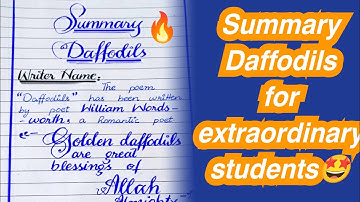 Summary
Daffodils
Writer Name:
The poem
"Daffodils" has been written
by poet William Words-
worth. a Romantic poet
Golden daffodils
are great
blessings of
Allah
Almighty
Summary
Daffodils
for
extraordinary
students